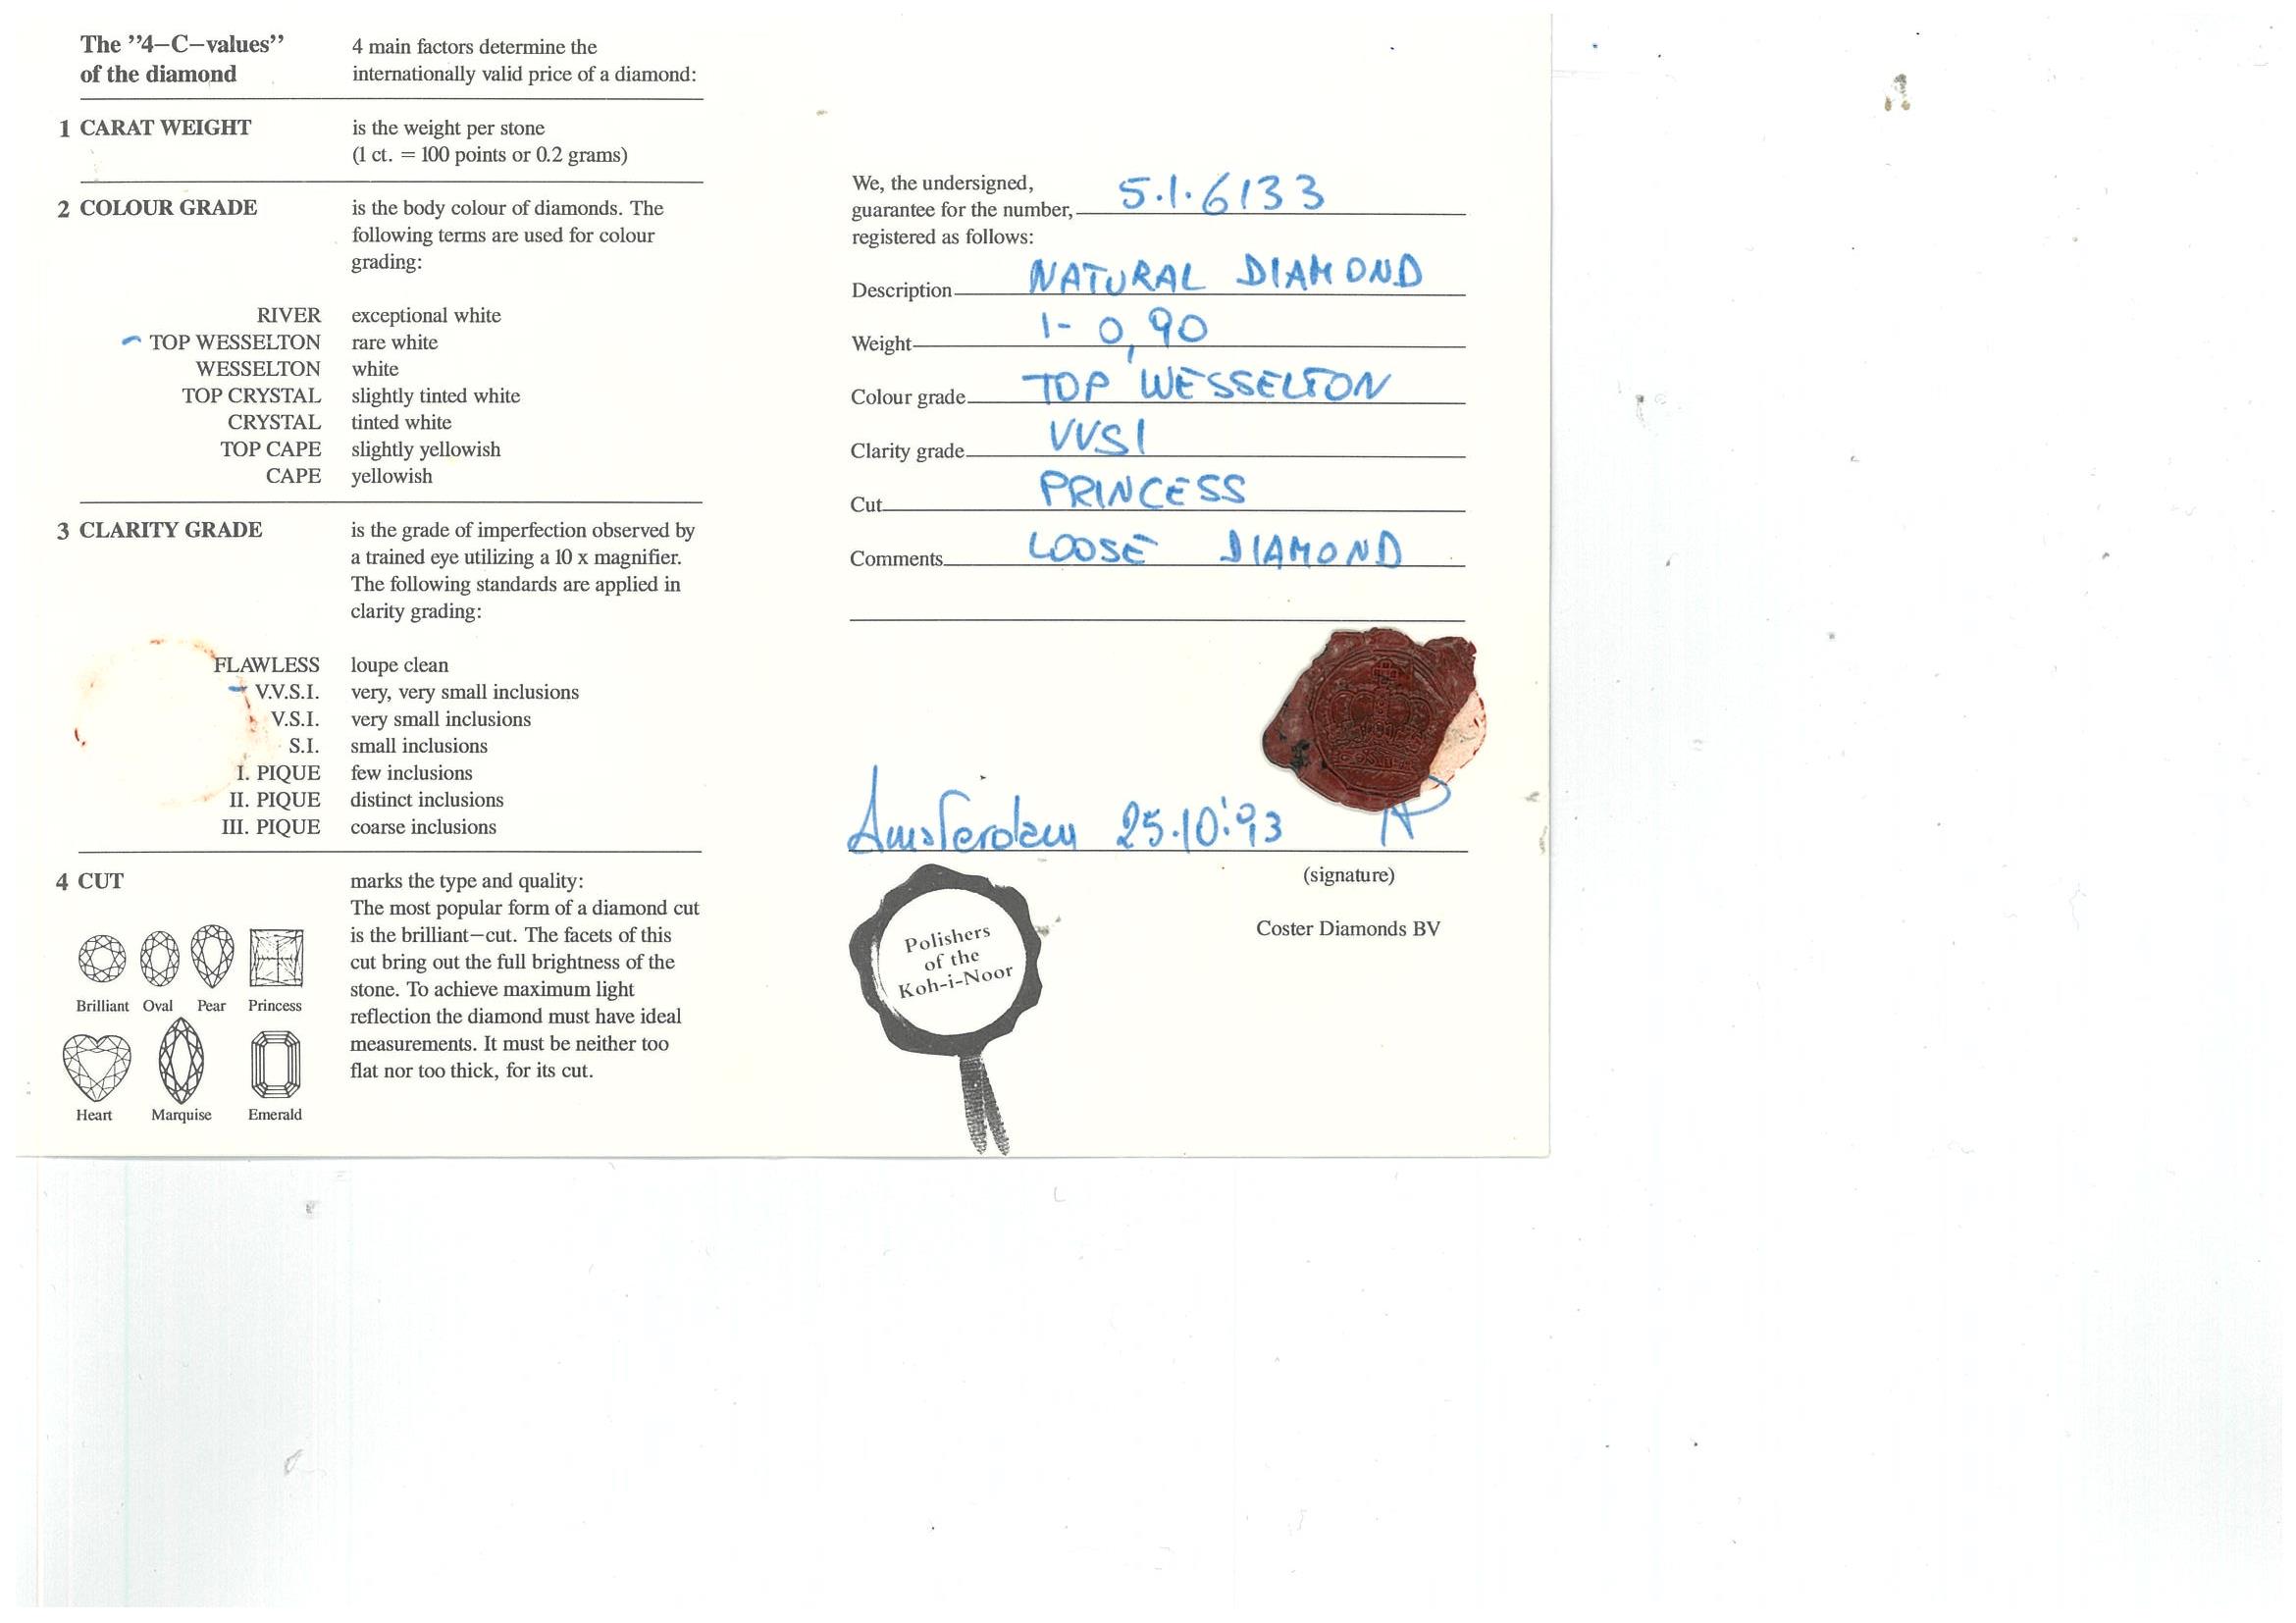 The ”4–C–values”
of the diamond
4 main factors determine the
internationally valid price of a diamond:
1 CARAT WEIGHT
is the weight per stone
(1 ct. = 100 points or 0.2 grams)
2 COLOUR GRADE
is the body colour of diamonds. The
following terms are used for colour
grading:
RIVER exceptional white
TOP WESSELTON rare white
WESSELTON white
TOP CRYSTAL slightly tinted white
CRYSTAL tinted white
TOP CAPE slightly yellowish
CAPE yellowish
3 CLARITY GRADE
is the grade of imperfection observed by
a trained eye utilizing a 10 x magnifier.
The following standards are applied in
clarity grading:
FLAWLESS loupe clean
V.V.S.I. very, very small inclusions
V.S.I. very small inclusions
S.I. small inclusions
I. PIQUE few inclusions
II. PIQUE distinct inclusions
III. PIQUE coarse inclusions
4 CUT
marks the type and quality:
The most popular form of a diamond cut
is the brilliant–cut. The facets of this
cut bring out the full brightness of the
stone. To achieve maximum light
reflection the diamond must have ideal
measurements. It must be neither too
flat nor too thick, for its cut.
Brilliant Oval Pear Princess
Heart Marquise Emerald
We, the undersigned,
guarantee for the number, 5.1.6133
registered as follows:
Description NATURAL DIAMOND
Weight 1- 0,90
Colour grade TOP WESSELTON
Clarity grade VVSI
Cut PRINCESS
Comments LOOSE DIAMOND
Amsterdam 25.10.'93
(signature)
Coster Diamonds BV
Polishers
of the
Koh-i-Noor